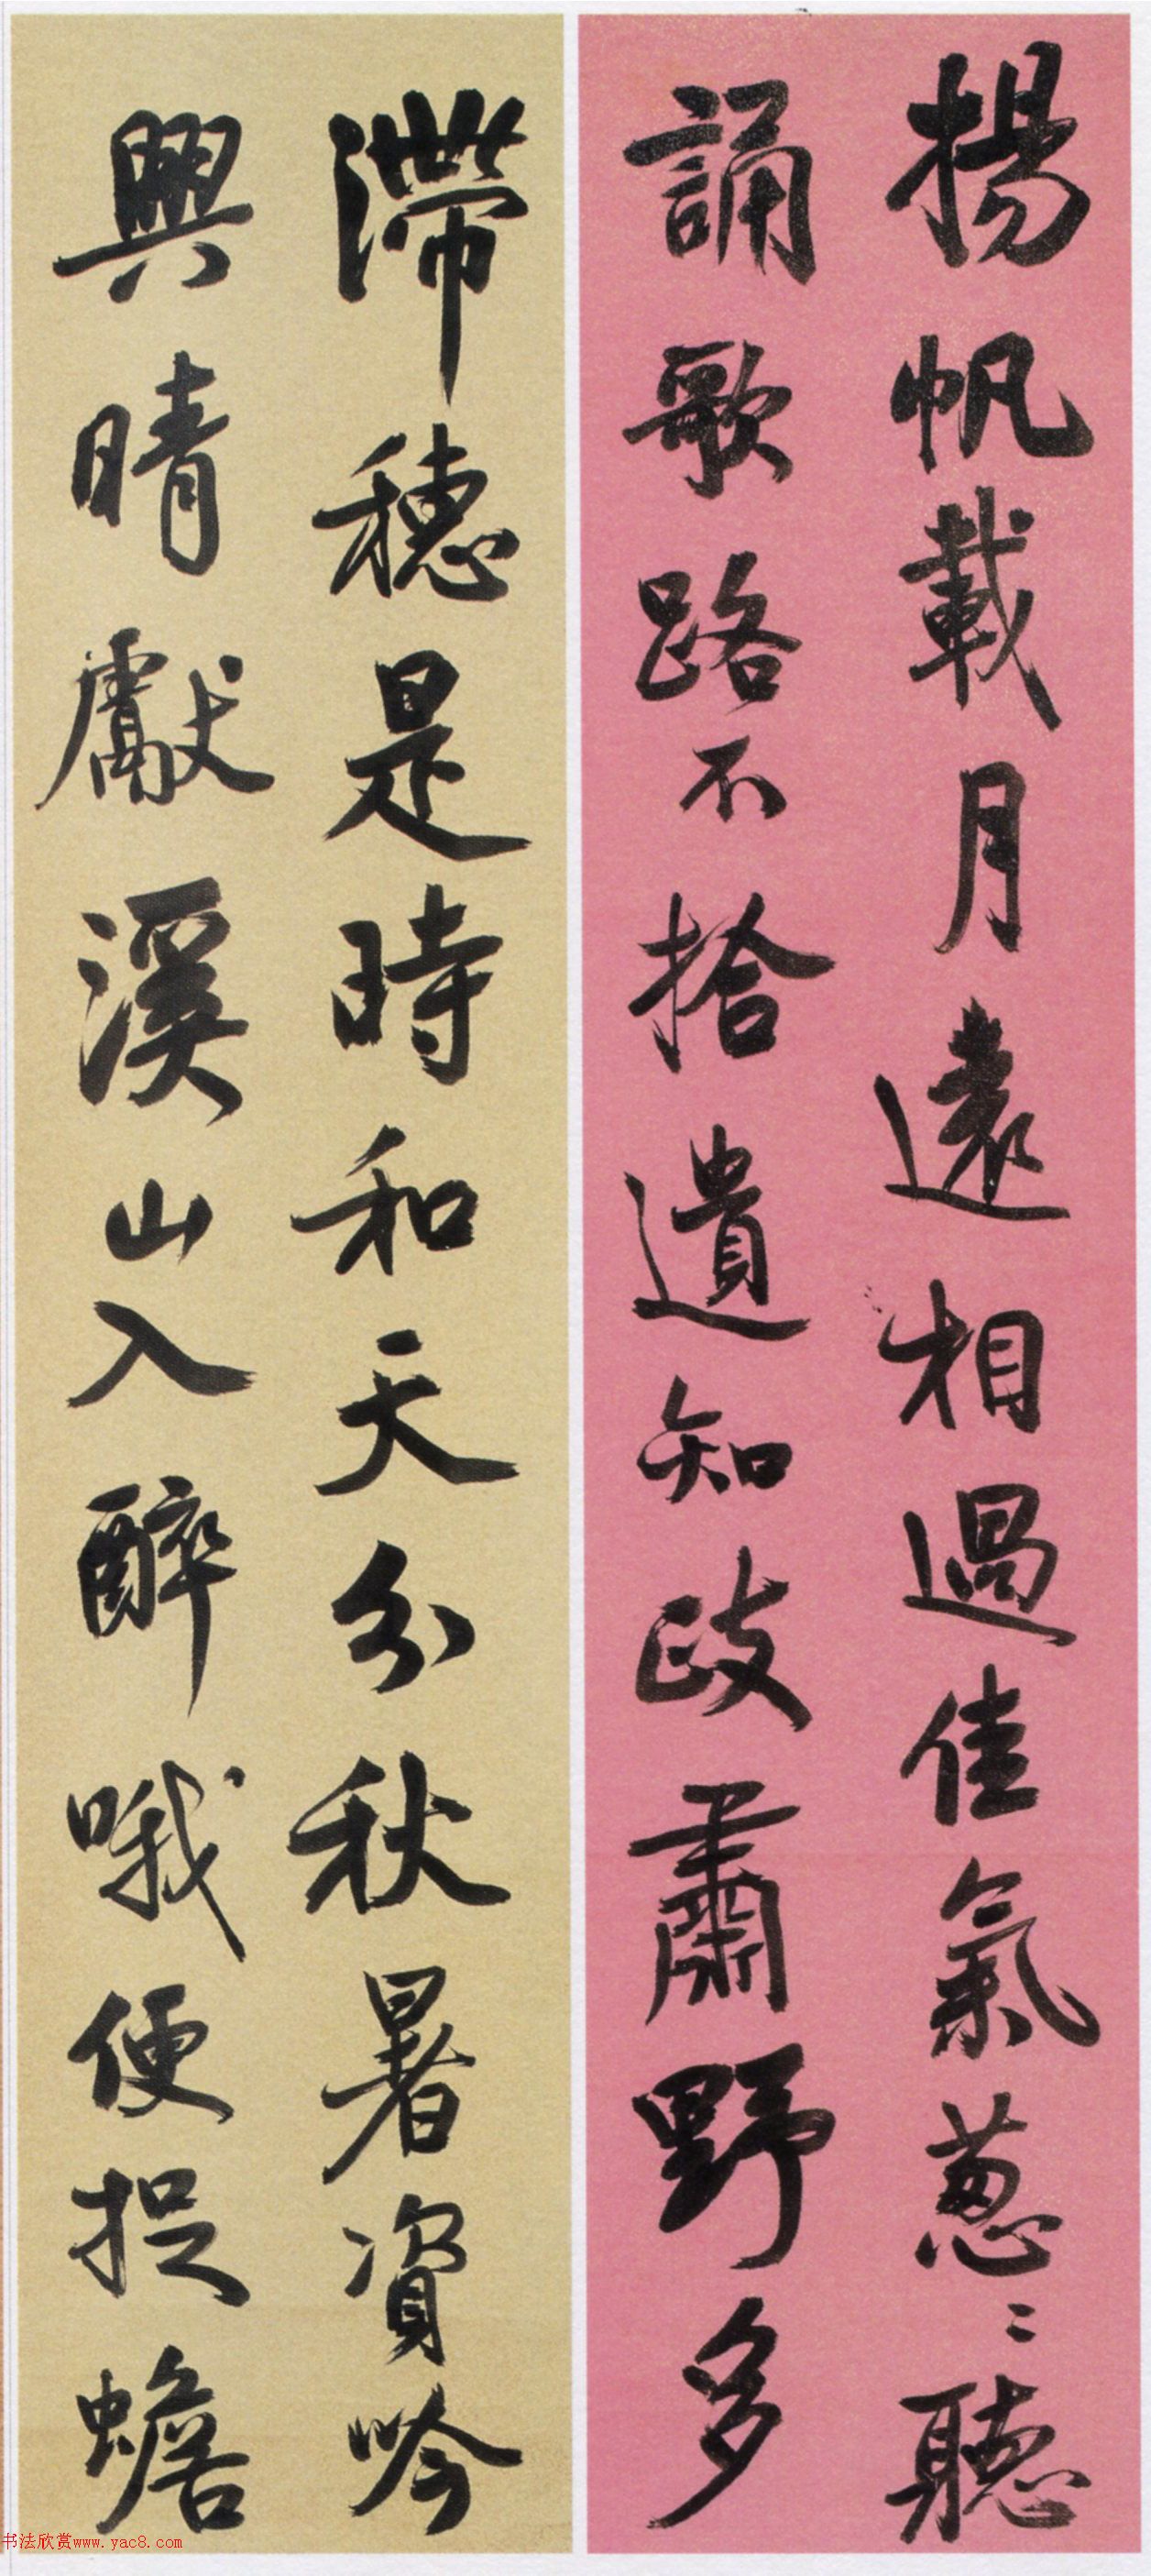 揚帆載月遠相過佳氣葱〻聽
誦歌路不捨遺知政肅野多
滯穗是時和天分秋暑資吟
興晴獻溪山入醉哦便捉蟾
书法欣赏www.yac8.com